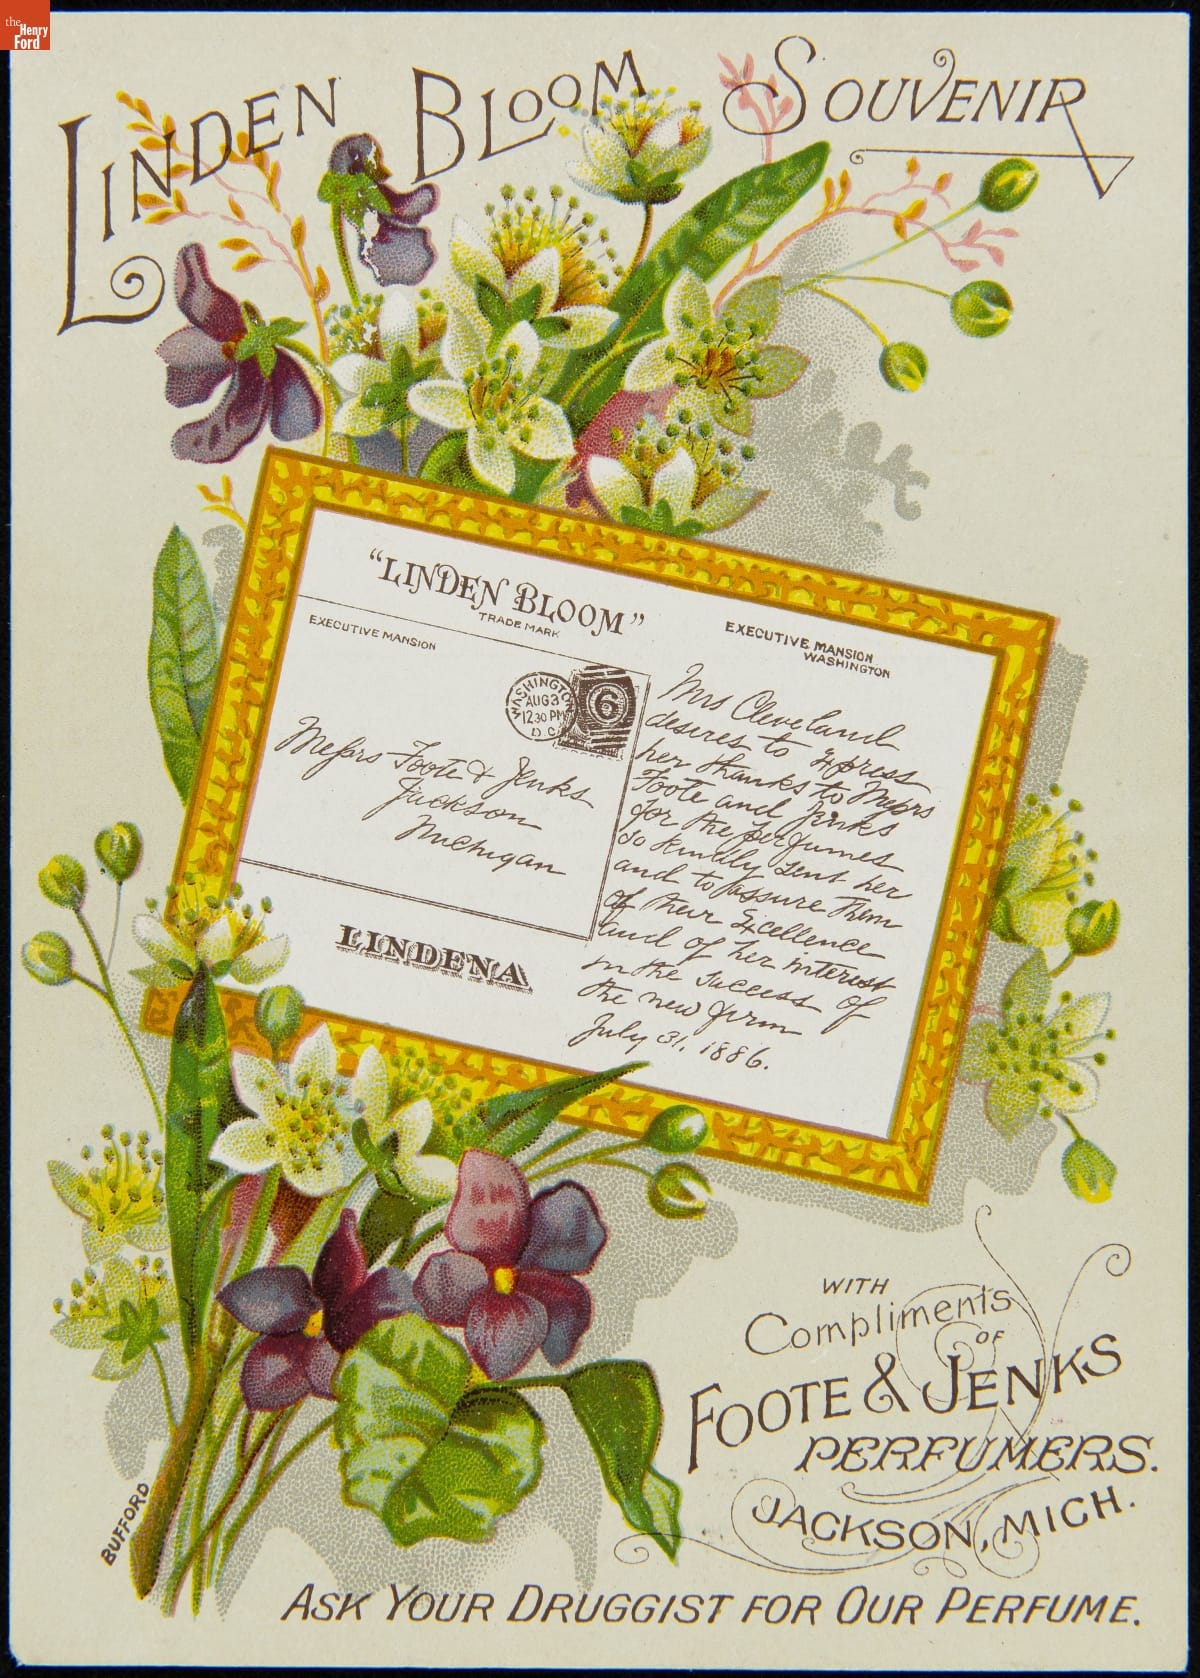 the
Henry
Ford
LINDEN BLOOM SOUVENIR
"LINDEN BLOOM"
TRADE MARK
EXECUTIVE MANSION
WASHINGTON
AUG 31
12 30 PM
D.C.
6
Messrs Foote & Jenks
Jackson
Michigan
LINDENA
EXECUTIVE MANSION
WASHINGTON
Mrs Cleveland
desires to express
her thanks to Messrs
Foote and Jenks
for the perfumes
so kindly sent her
and to assure them
of their Excellence
and of her interest
in the success of
the new firm
July 31, 1886.
WITH
Compliments
OF
FOOTE & JENKS
PERFUMERS.
JACKSON, MICH.
BUFFORD
ASK YOUR DRUGGIST FOR OUR PERFUME.